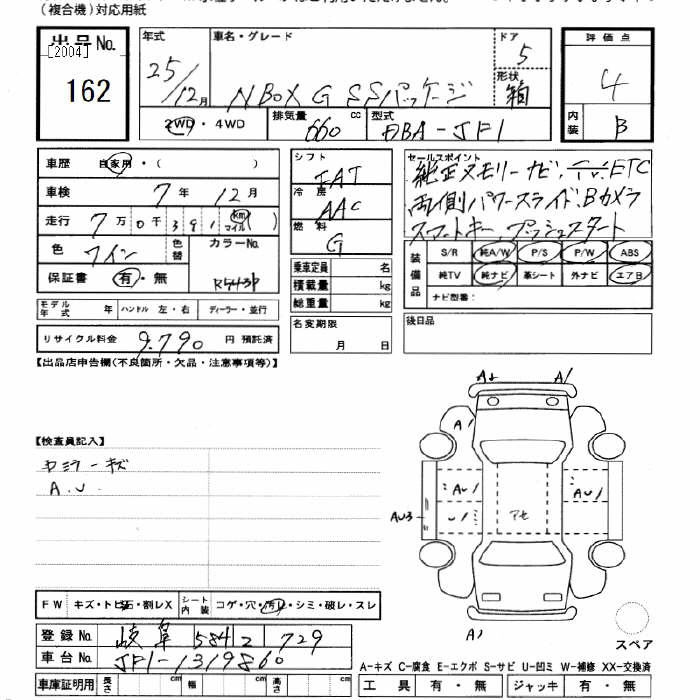 (複合機)対応用紙
出品No.
[2004]
162
年式
25/12月
車名・グレード
N BOX G SSパッケージ
ドア
5
形状
箱
評価点
4
内装
B
2WD・4WD
排気量
660 cc
型式
DBA-JF1
車歴 自家用・( )
車検 7年 12月
走行 7万0千391 km マイル ( )
色 ワイン
色替
カラーNo.
R543P
保証書 有・無
モデル年式 年 ハンドル 左・右 ディーラー・並行
リサイクル料金 9,790 円 預託済
シフト
FAT
冷房
AAC
燃料
G
乗車定員 名
積載量 kg
総重量 kg
名変期限
月 日
セールスポイント
純正メモリーナビ,TV,ETC
両側パワースライド,Bカメラ
スマートキー,プッシュスタート
装備品
S/R 純A/W P/S P/W ABS
純TV 純ナビ 革シート 外ナビ エアB
ナビ型番:
後日品
【出品店申告欄(不良箇所・欠品・注意事項等)】
【検査員記入】
ミラーキズ
A.U
A↓ A1
A1
AU1 AU1
U1
AU3
アセ
A1
スペア
FW キズ・トビ石・割レX
シート内装 コゲ・穴・汚レ・シミ・破レ・スレ
登録No. 岐阜 584 Z 729
車台No. JF1-1319860
車庫証明用 長さ cm 幅 cm 高さ cm
A-キズ C-腐食 E-エクボ S-サビ U-凹ミ W-補修 XX-交換済
工具 有・無 ジャッキ 有・無